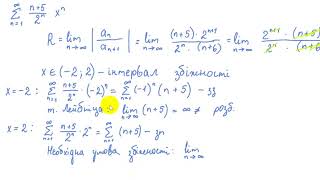 ∑_{n=1}^{∞} (n+5)/2ⁿ xⁿ
R = lim_{n→∞} |aₙ/aₙ₊₁| = lim_{n→∞} (n+5)·2ⁿ⁺¹/(2ⁿ·(n+6)) = lim_{n→∞} 2ⁿ⁺¹·(n+5)/(2ⁿ·(n+6))
x ∈ (-2; 2) - інтервал збіжності
x = -2: ∑_{n=1}^{∞} (n+5)/2ⁿ · (-2)ⁿ = ∑_{n=1}^{∞} (-1)ⁿ (n+5) - зз
т. Лейбніца: lim_{n→∞} (n+5) = ∞ ≠ розб.
x = 2: ∑_{n=1}^{∞} (n+5)/2ⁿ · 2ⁿ = ∑_{n=1}^{∞} (n+5) - зп
Необхідна умова збіжності: lim_{n→∞}